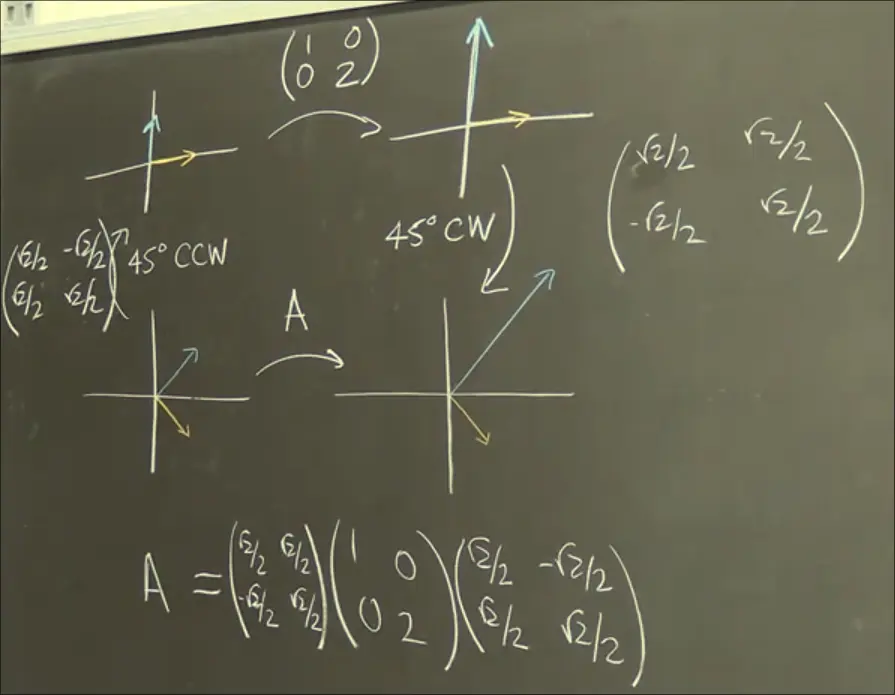 1 0
0 2
√2/2 √2/2
-√2/2 √2/2
45° CW
√2/2 -√2/2
√2/2 √2/2
45° CCW
A
A = (√2/2 √2/2) (1 0) (√2/2 -√2/2)
(-√2/2 √2/2) (0 2) (√2/2 √2/2)